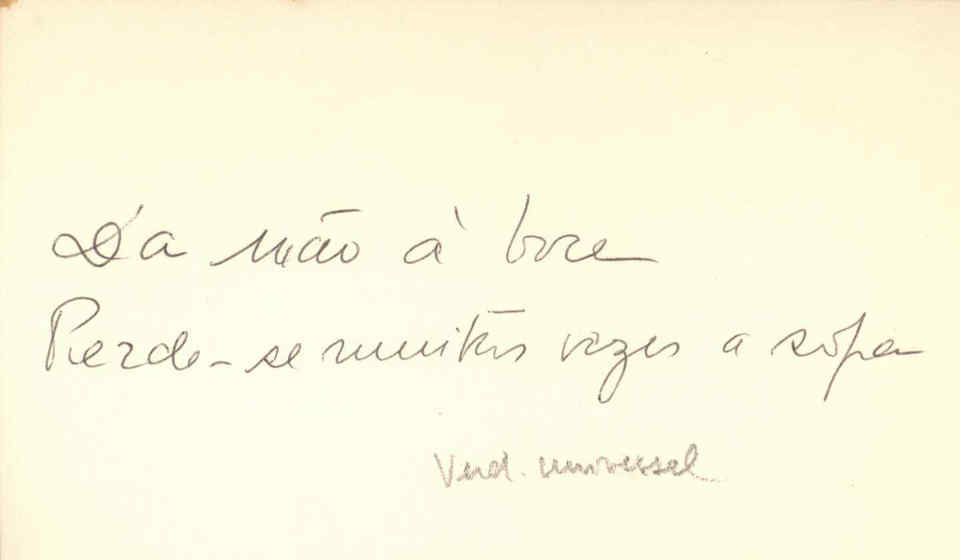 Da mão à boca
Perde-se muitas vezes a sopa
Verd. universal